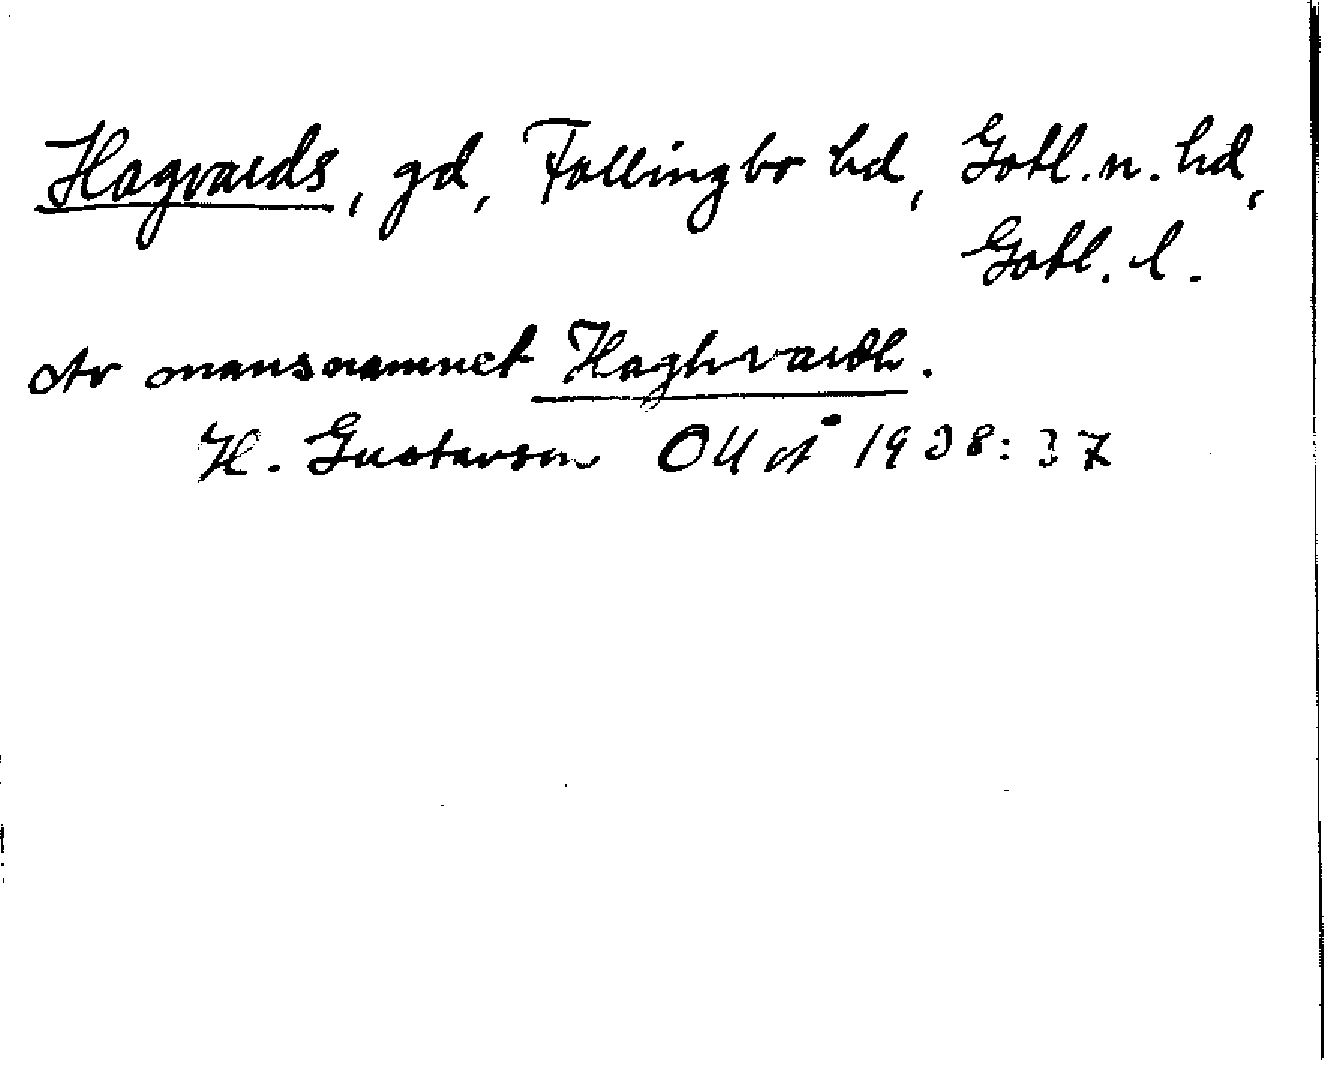 Hagvards, gd, Follingbo hd, Gotl. n. hd,
Gotl. l.
Av mansnamnet Haghvardh.
H. Gustavson 1938:37